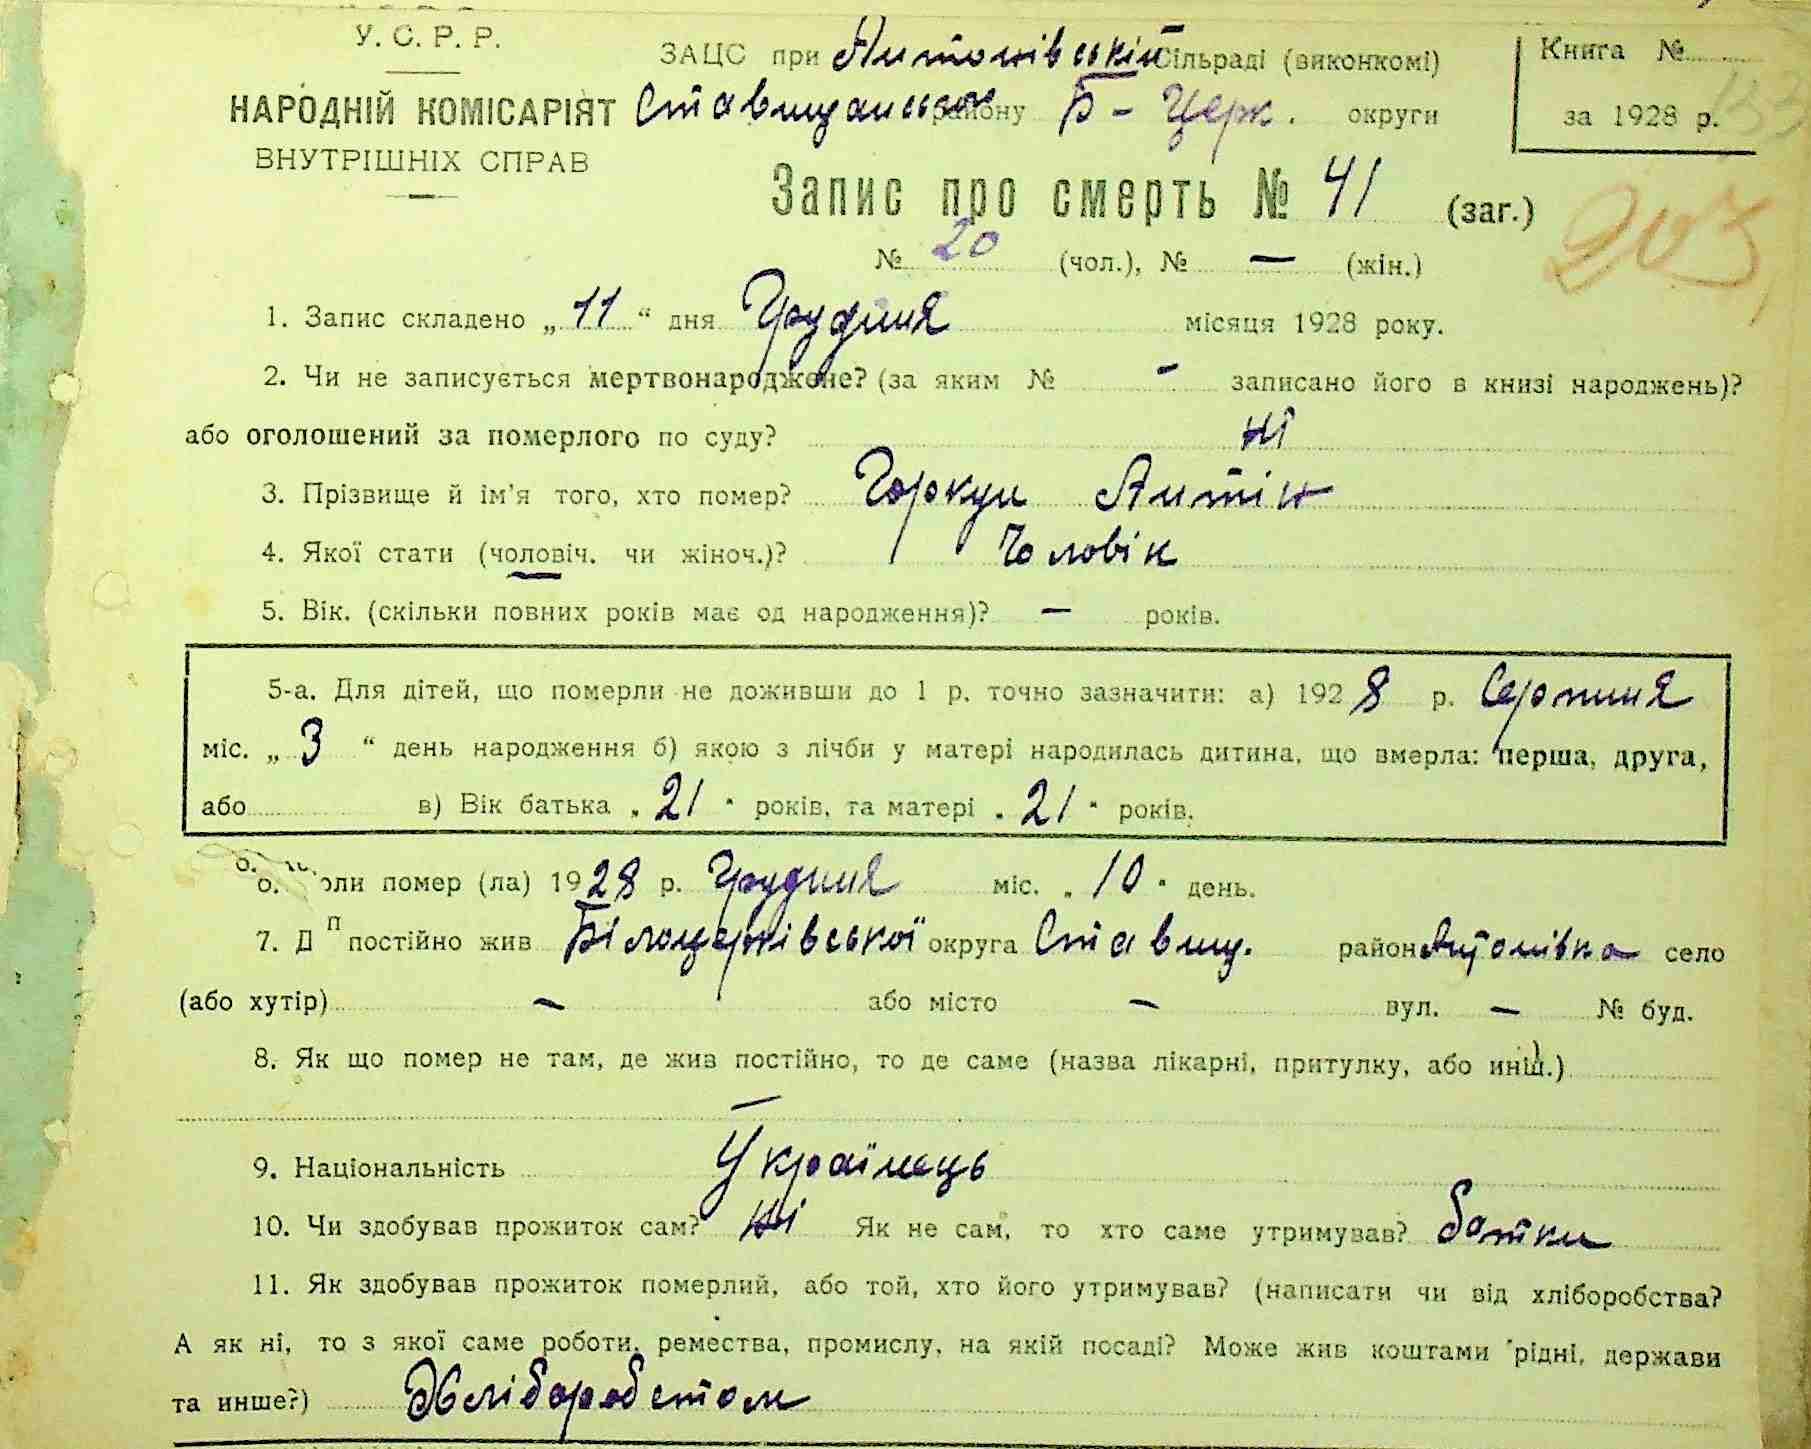 У. С. Р. Р.
НАРОДНІЙ КОМІСАРІЯТ
ВНУТРІШНІХ СПРАВ
ЗАЦС при Антонівській сільраді (виконкомі)
Ставищанського району Б - Церк. округи
Книга №
за 1928 р.
133
Запис про смерть № 41 (заг.)
203
№ 20 (чол.), № — (жін.)
1. Запис складено „ 11 “ дня Грудня місяця 1928 року.
2. Чи не записується мертвонароджене? (за яким № - записано його в книзі народжень)?
або оголошений за померлого по суду? ні
3. Прізвище й ім'я того, хто помер? Горкун Антін
4. Якої стати (чоловіч. чи жіноч.)? Чоловік
5. Вік. (скільки повних років має од народження)? — років.
5-а. Для дітей, що померли не доживши до 1 р. точно зазначити: а) 1928 р. Серпня
міс. „ 3 “ день народження б) якою з лічби у матері народилась дитина, що вмерла: перша, друга,
або в) Вік батька „ 21 “ років, та матері „ 21 “ років.
6. Коли помер (ла) 1928 р. Грудня міс. „ 10 “ день.
7. Д п постійно жив Білоцерківської округа Ставищ. район Антонівка село
(або хутір) — або місто — вул. — № буд.
8. Як що помер не там, де жив постійно, то де саме (назва лікарні, притулку, або инш.)
—
9. Національність Українець
10. Чи здобував прожиток сам? ні Як не сам, то хто саме утримував? батки
11. Як здобував прожиток померлий, або той, хто його утримував? (написати чи від хліборобства?
А як ні, то з якої саме роботи, ремества, промислу, на якій посаді? Може жив коштами рідні, держави
та инше?) Хліборобстом